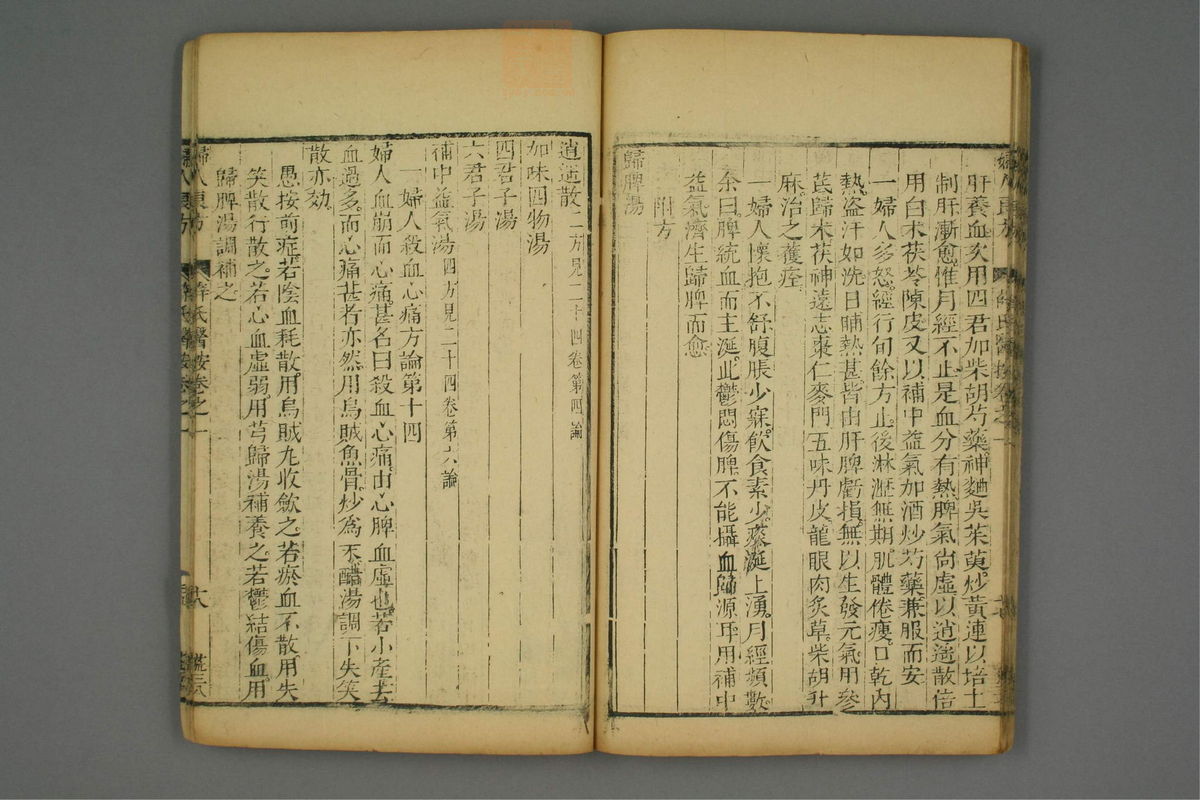 肝養血矣用四君加柴胡芍藥神麯吳茱萸炒黃連以培土
制肝漸愈惟月經不止是血分有熱脾氣尚虛以逍遙散倍
用白朮茯苓陳皮又以補中益氣加酒炒芍藥兼服而安
一婦人多怒經行旬餘方止後淋瀝無期肌體倦瘦口乾內
熱盜汗如洗日晡熱甚皆由肝脾虧損無以生發元氣用參
芪歸朮茯神遠志棗仁麥門五味丹皮龍眼肉炙草柴胡升
麻治之獲痊
一婦人懷抱不舒腹脹少寐飲食素少痰涎上湧月經頻數
余曰脾統血而主涎此鬱悶傷脾不能攝血歸源耳用補中
益氣濟生歸脾而愈
附方
歸脾湯
逍遙散二方見二十四卷第四論
加味四物湯
四君子湯
六君子湯
補中益氣湯四方見二十四卷第六論
一婦人殺血心痛方論第十四
婦人血崩而心痛甚名曰殺血心痛由心脾血虛也若小產去
血過多而心痛甚者亦然用烏賊魚骨炒為末醋湯調下失笑
散亦効
愚按前症若陰血耗散用烏賊丸收歛之若瘀血不散用失
笑散行散之若心血虛弱用芎歸湯補養之若鬱結傷血用
歸脾湯調補之
婦人良方 薛氏醫按卷之一 十八